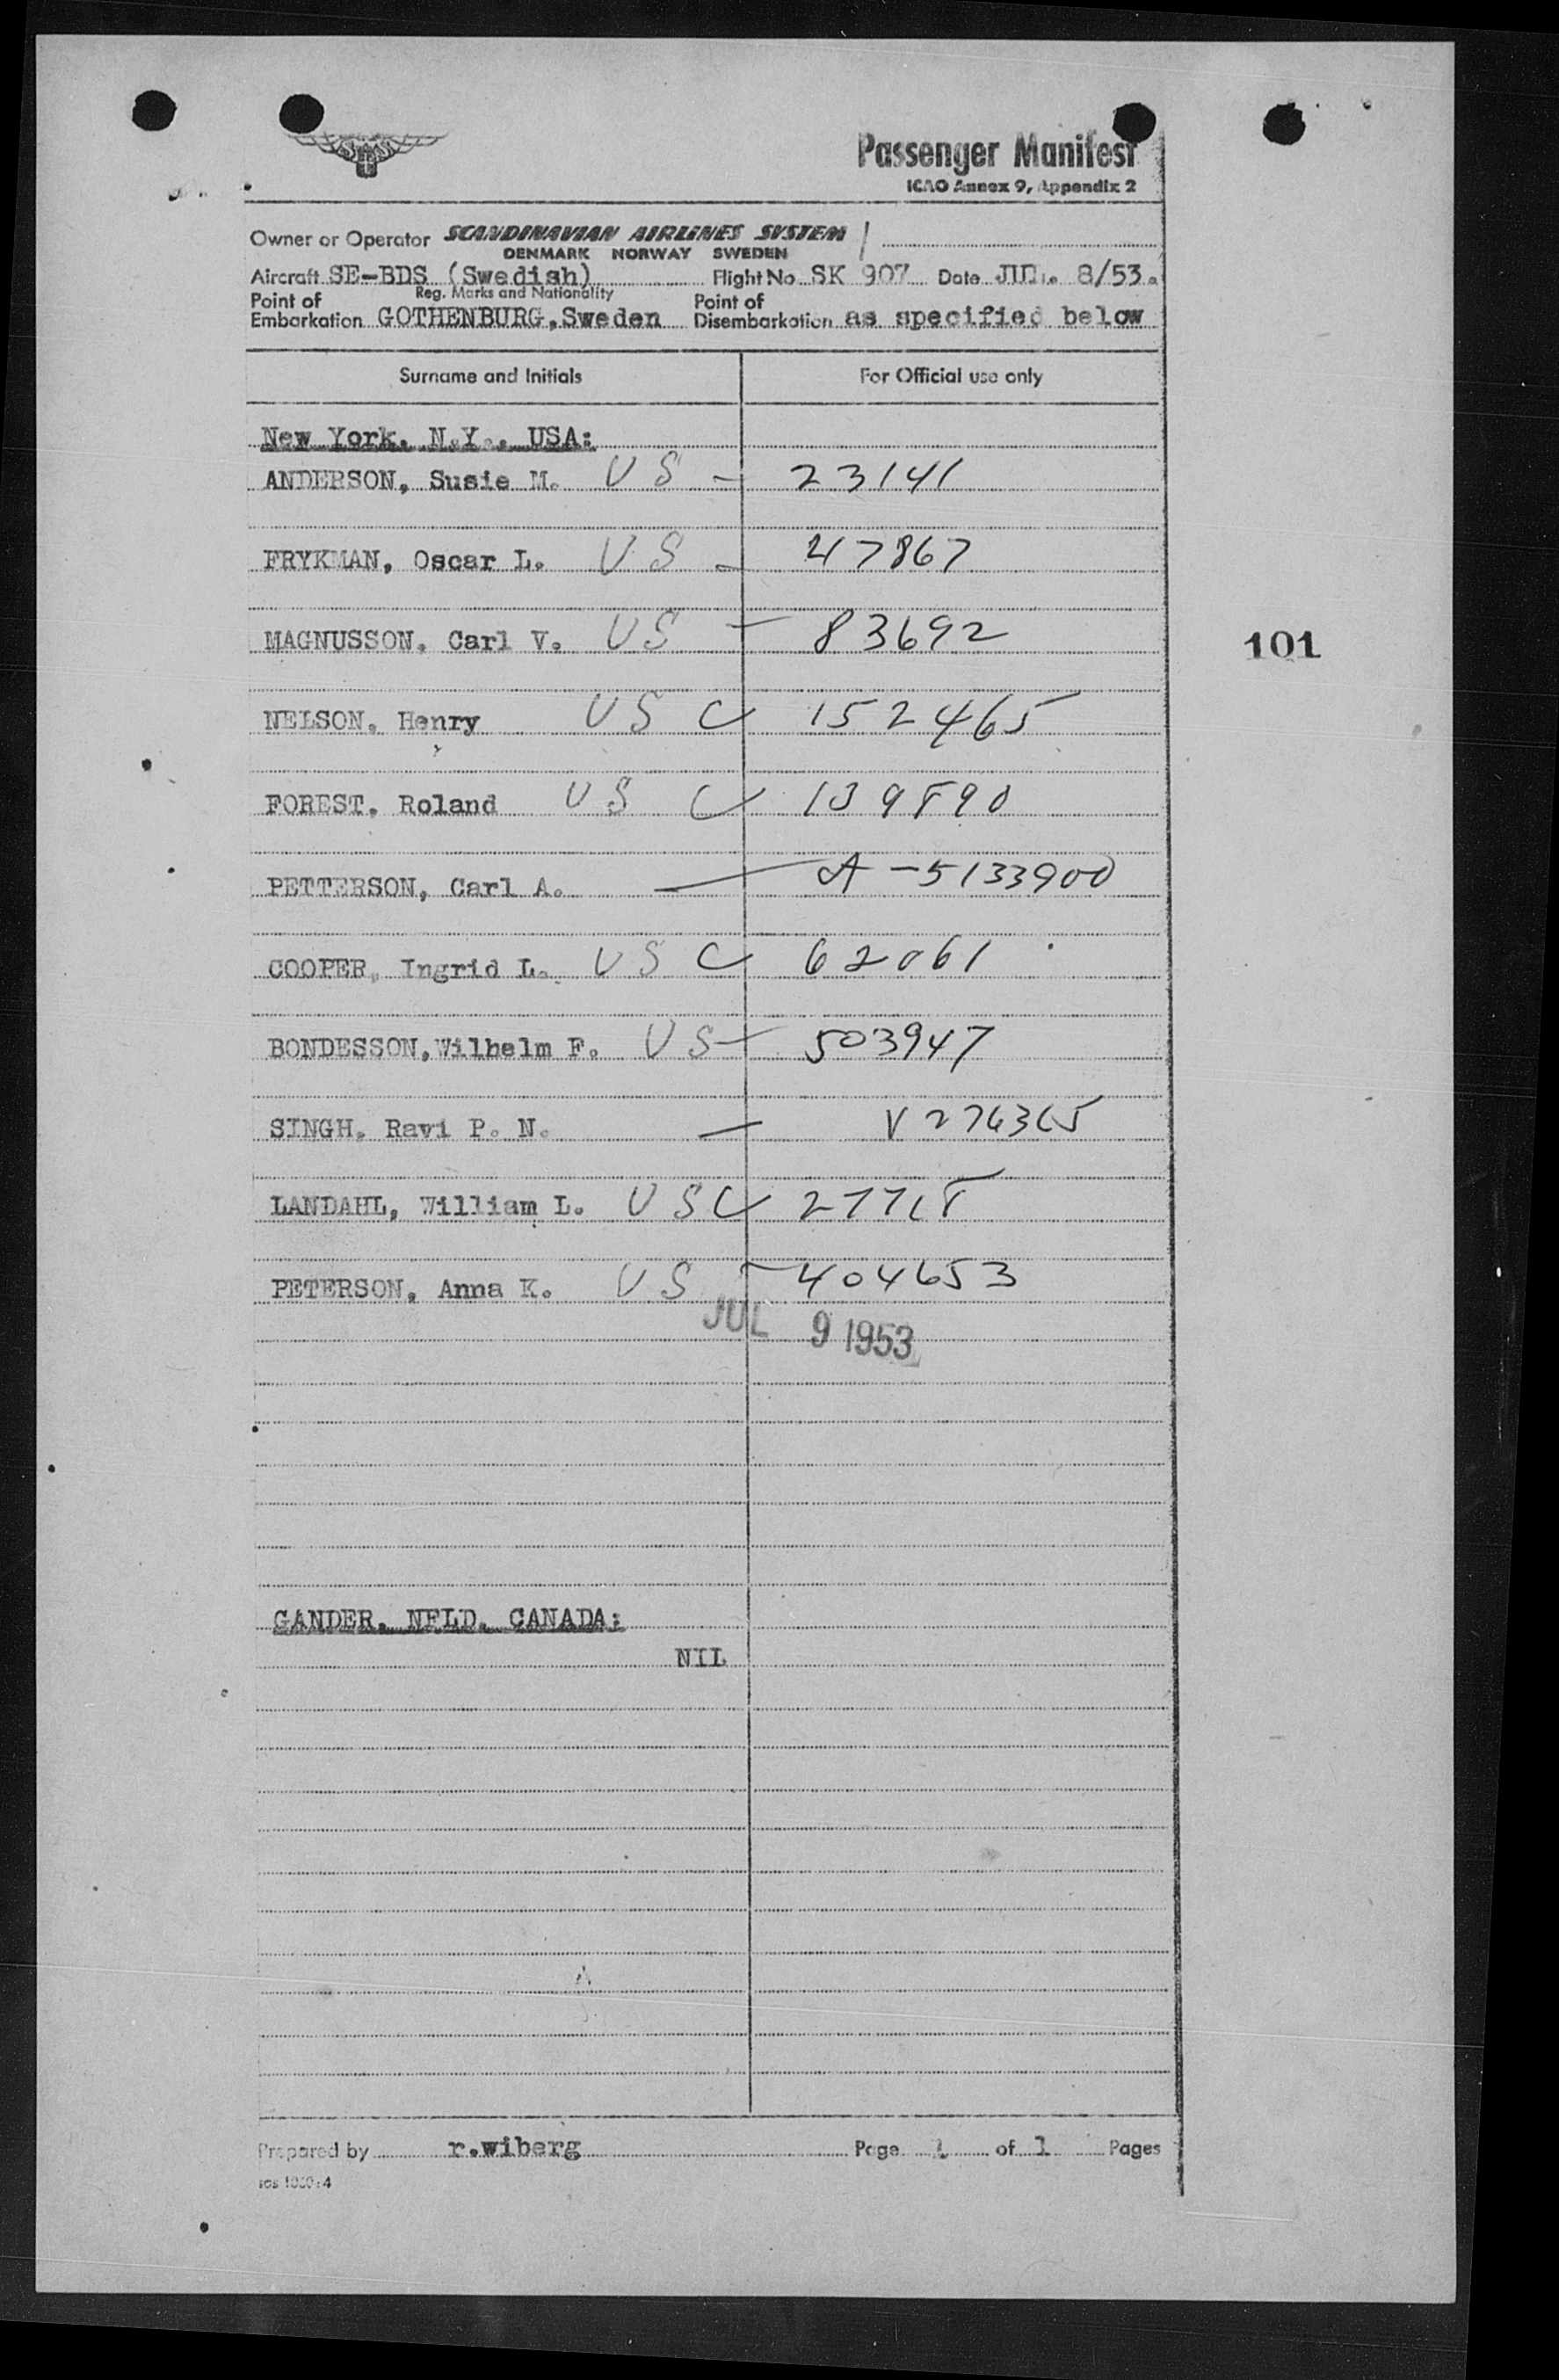 Passenger Manifest
ICAO Annex 9, Appendix 2
Owner or Operator SCANDINAVIAN AIRLINES SYSTEM
DENMARK NORWAY SWEDEN
Aircraft SE-BDS (Swedish) Flight No. SK 907 Date JUL. 8/53.
Reg. Marks and Nationality
Point of Embarkation GOTHENBURG, Sweden Point of Disembarkation as specified below
Surname and Initials For Official use only
New York, N.Y., USA:
ANDERSON, Susie M. US - 23141
FRYKMAN, Oscar L. US - 47867
101
MAGNUSSON, Carl V. US - 83692
NELSON, Henry US C 152465
FOREST, Roland US C 139890
PETTERSON, Carl A. — A-5133900
COOPER, Ingrid L. US C 62061
BONDESSON, Wilhelm F. US - 503947
SINGH, Ravi P. N. — V276365
LANDAHL, William L. USC
PETERSON, Anna K. US - 404653
JUL 9 1953
GANDER, NFLD, CANADA:
NIL
Prepared by r.wiberg Page 1 of 1 Pages